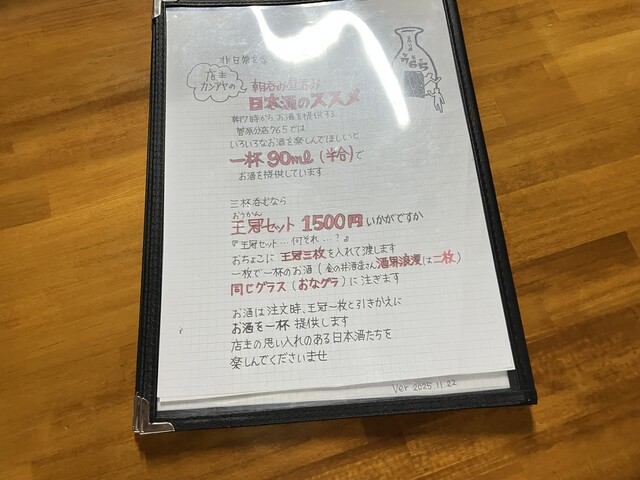 非日常を
店主
カンアヤの
朝呑み昼呑み
日本酒のススメ
朝7時からお酒を提供する
菅原分店765では
いろいろなお酒を楽しんでほしいと
一杯90ml(半合)で
お酒を提供しています
三杯呑むなら
おうかん
王冠セット 1500円 いかがですか
『王冠セット…何それ…?』
おちょこに 王冠三枚 を入れて渡します
一枚で一杯のお酒(金の井酒造さん 酒界浪漫 は二枚)
同じグラス(おなグラ)に注ぎます
お酒は注文時、王冠一枚と引きかえに
お酒を一杯 提供します
店主の思い入れのある日本酒たちを
楽しんでくださいませ
Ver 2025.11.22
765